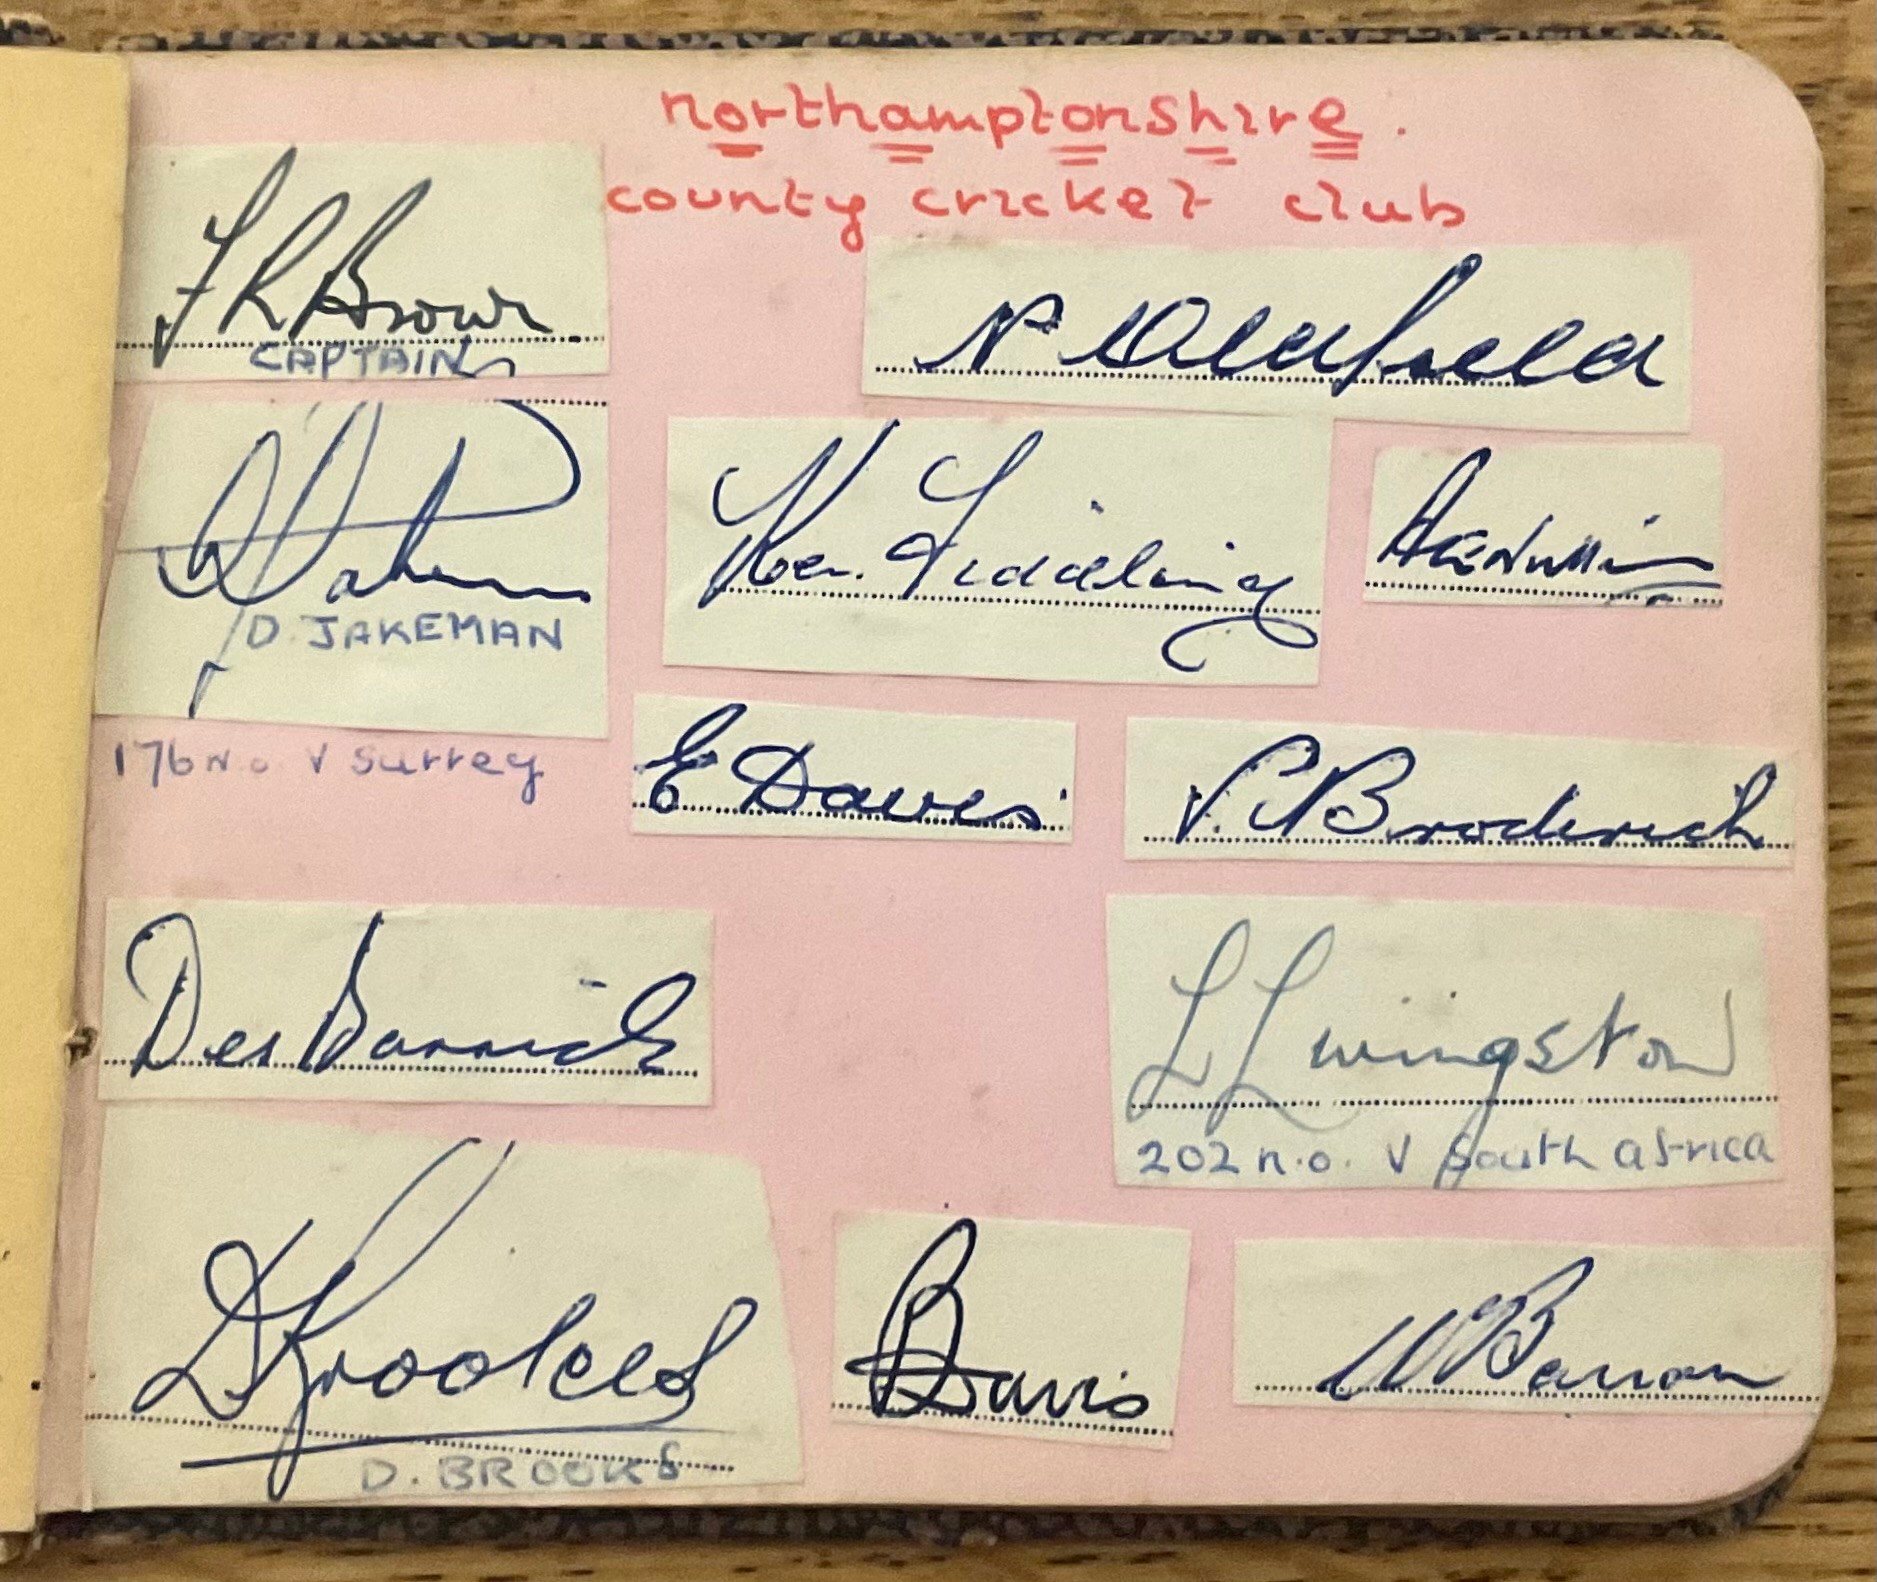 northamptonshire.
county cricket club
F R Brown
CAPTAIN
N. Oldfield
D. JAKEMAN
176 N.o V Surrey
Ken. Fiddling
E Davis
V. Broderick
Des Barrick
L Livingston
202 n.o. V South africa
D Brookes
D. BROOKS
Davis
W Barron